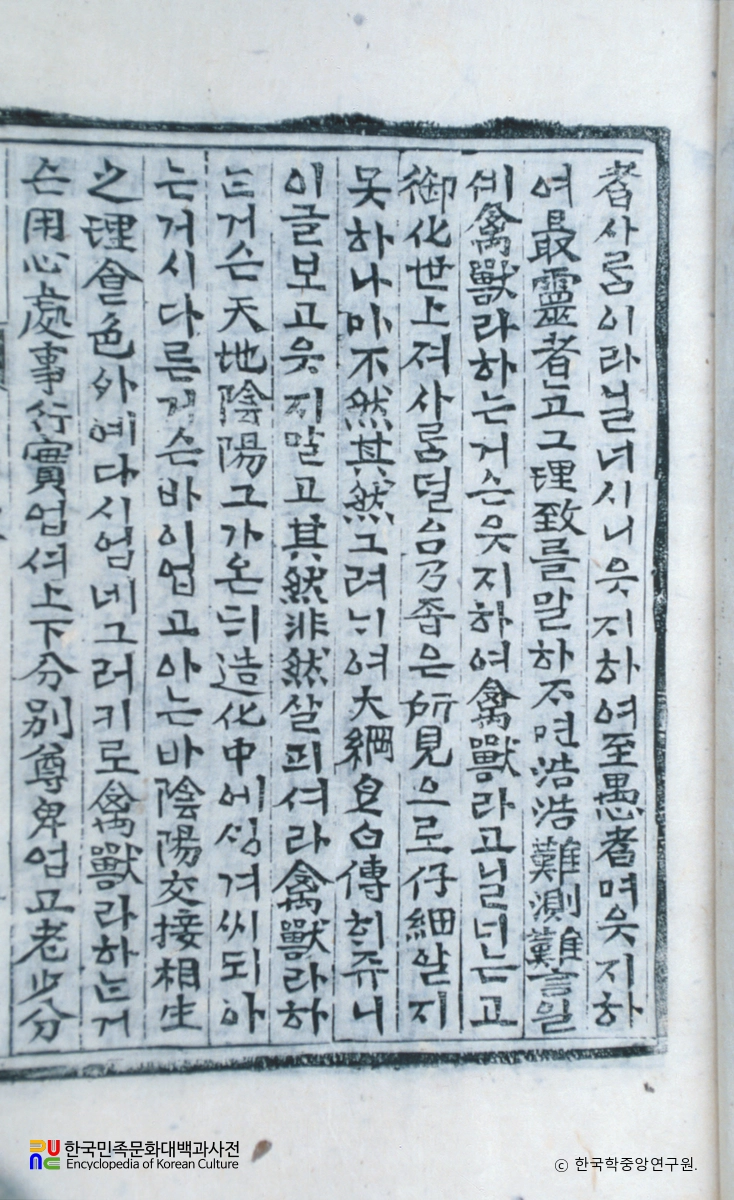 者사ᄅᆞᆷ이라닐너시니웃지하여至愚者며웃지하
여最靈者ᆫ고그理致를말하不면浩浩難測難言일
셰禽獸라하는거슨웃지하여禽獸라고닐넌는고
御化世上져사ᄅᆞᆷ덜合乃좁은所見으로仔細알지
못하나마不然其然그려ᄂᆡ여大綱大綱傳히쥬니
이글보고웃지말고其然非然살피셔라禽獸라하
ᄂᆞᆫ거슨天地陰陽그가온ᄃᆡ造化中에ᄉᆡᆼ겨씨되아
는거시다른거슨바이업고아는바陰陽交接相生
之理食色外예다시업네그러키로禽獸라하ᄂᆞᆫ거
슨用心處事行實업셔上下分別尊卑업고老少分
한국민족문화대백과사전
Encyclopedia of Korean Culture
ⓒ 한국학중앙연구원.